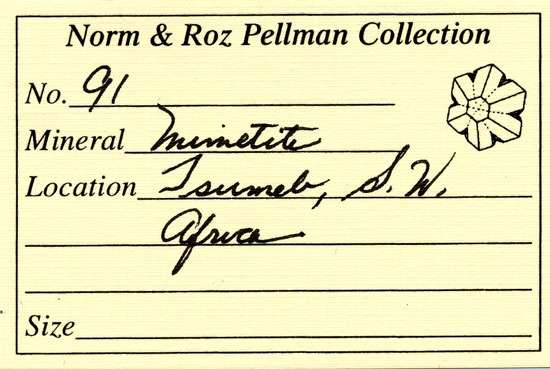 Norm & Roz Pellman Collection
No. 91
Mineral Mimetite
Location Tsumeb, S. W.
Africa
Size